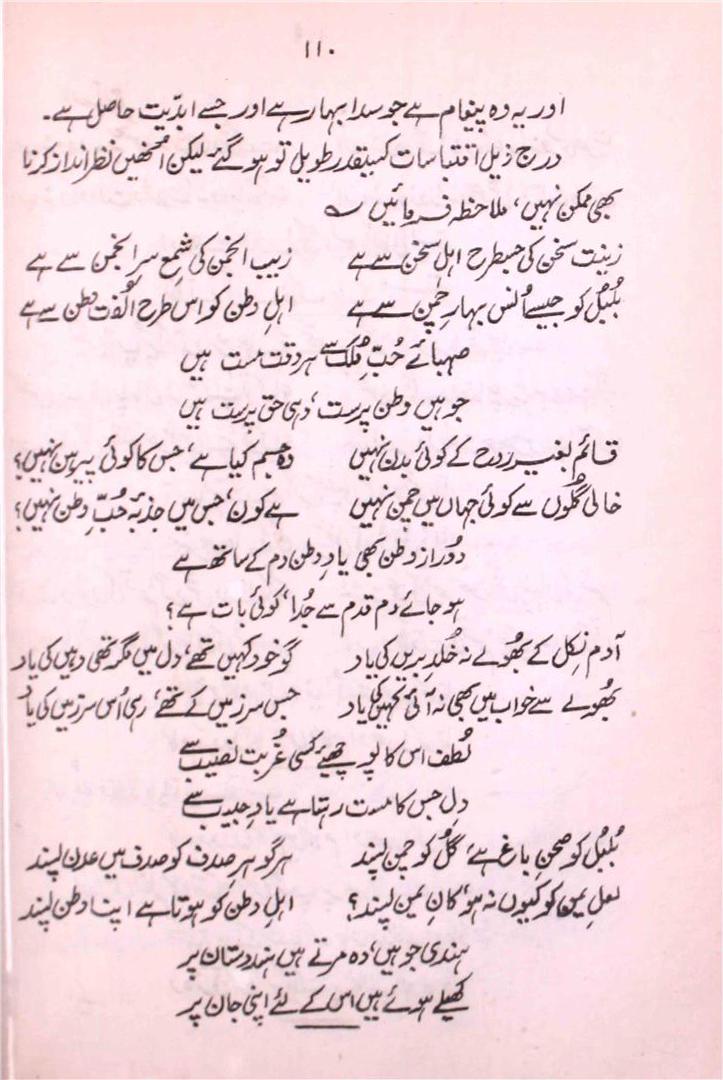 ۱۱۰
اور یہ وہ پیغام ہے جو سدا بہار ہے اور جسے ابدّیت حاصل ہے۔
درج ذیل اقتباسات کسیقدر طویل تو ہو گئے۔ لیکن اُنھیں نظر انداز کرنا
بھی ممکن نہیں، ملاحظہ فرمائیں ؎
زینت سخن کی جسطرح اہلِ سخن سے ہے زیب انجمن کی شمع سرِ انجمن سے ہے
بُلبُل کو جیسے اُنس بہارِ چمن سے ہے اہلِ وطن کو اس طرح اُلفت وطن سے ہے
صہبائے حُبِّ مُلک سے ہر وقت مست ہیں
جو ہیں وطن پرست، وہی حق پرست ہیں
قائم بغیر روح کے کوئی بدن نہیں وہ جسم کیا ہے، جس کا کوئی پیرہن نہیں؟
خالی گُلوں سے کوئی جہاں میں چمن نہیں ہے کون، جس میں جذبۂ حُبِّ وطن نہیں؟
دُور از وطن بھی یادِ وطن دم کے ساتھ ہے
ہو جائے دم قدم سے جُدا، کوئی بات ہے؟
آدم نِکل کے بھُولے نہ خُلدِ بریں کی یاد گو خود کہیں تھے، دل میں مگر تھی وہیں کی یاد
بھُولے سے خواب میں بھی نہ آئی کہیں کی یاد جس سرزمیں کے تھے، رہی اُس سرزمیں کی یاد
لُطف اس کا پوچھیے کسی غُربت نصیب سے
دِل جس کا مست رہتا ہے یادِ حبیب سے
بُلبُل کو صحنِ باغ ہے، گُل کو چمن پسند ہر گوہرِ صدف کو صدف میں عدن پسند
لعلِ یمن کو کیوں نہ ہو، کانِ یمن پسند؟ اہلِ وطن کو ہوتا ہے اپنا وطن پسند
ہندی جو ہیں، وہ مرتے ہیں ہندوستان پر
کھیلے ہوئے ہیں اس کے لئے اپنی جان پر